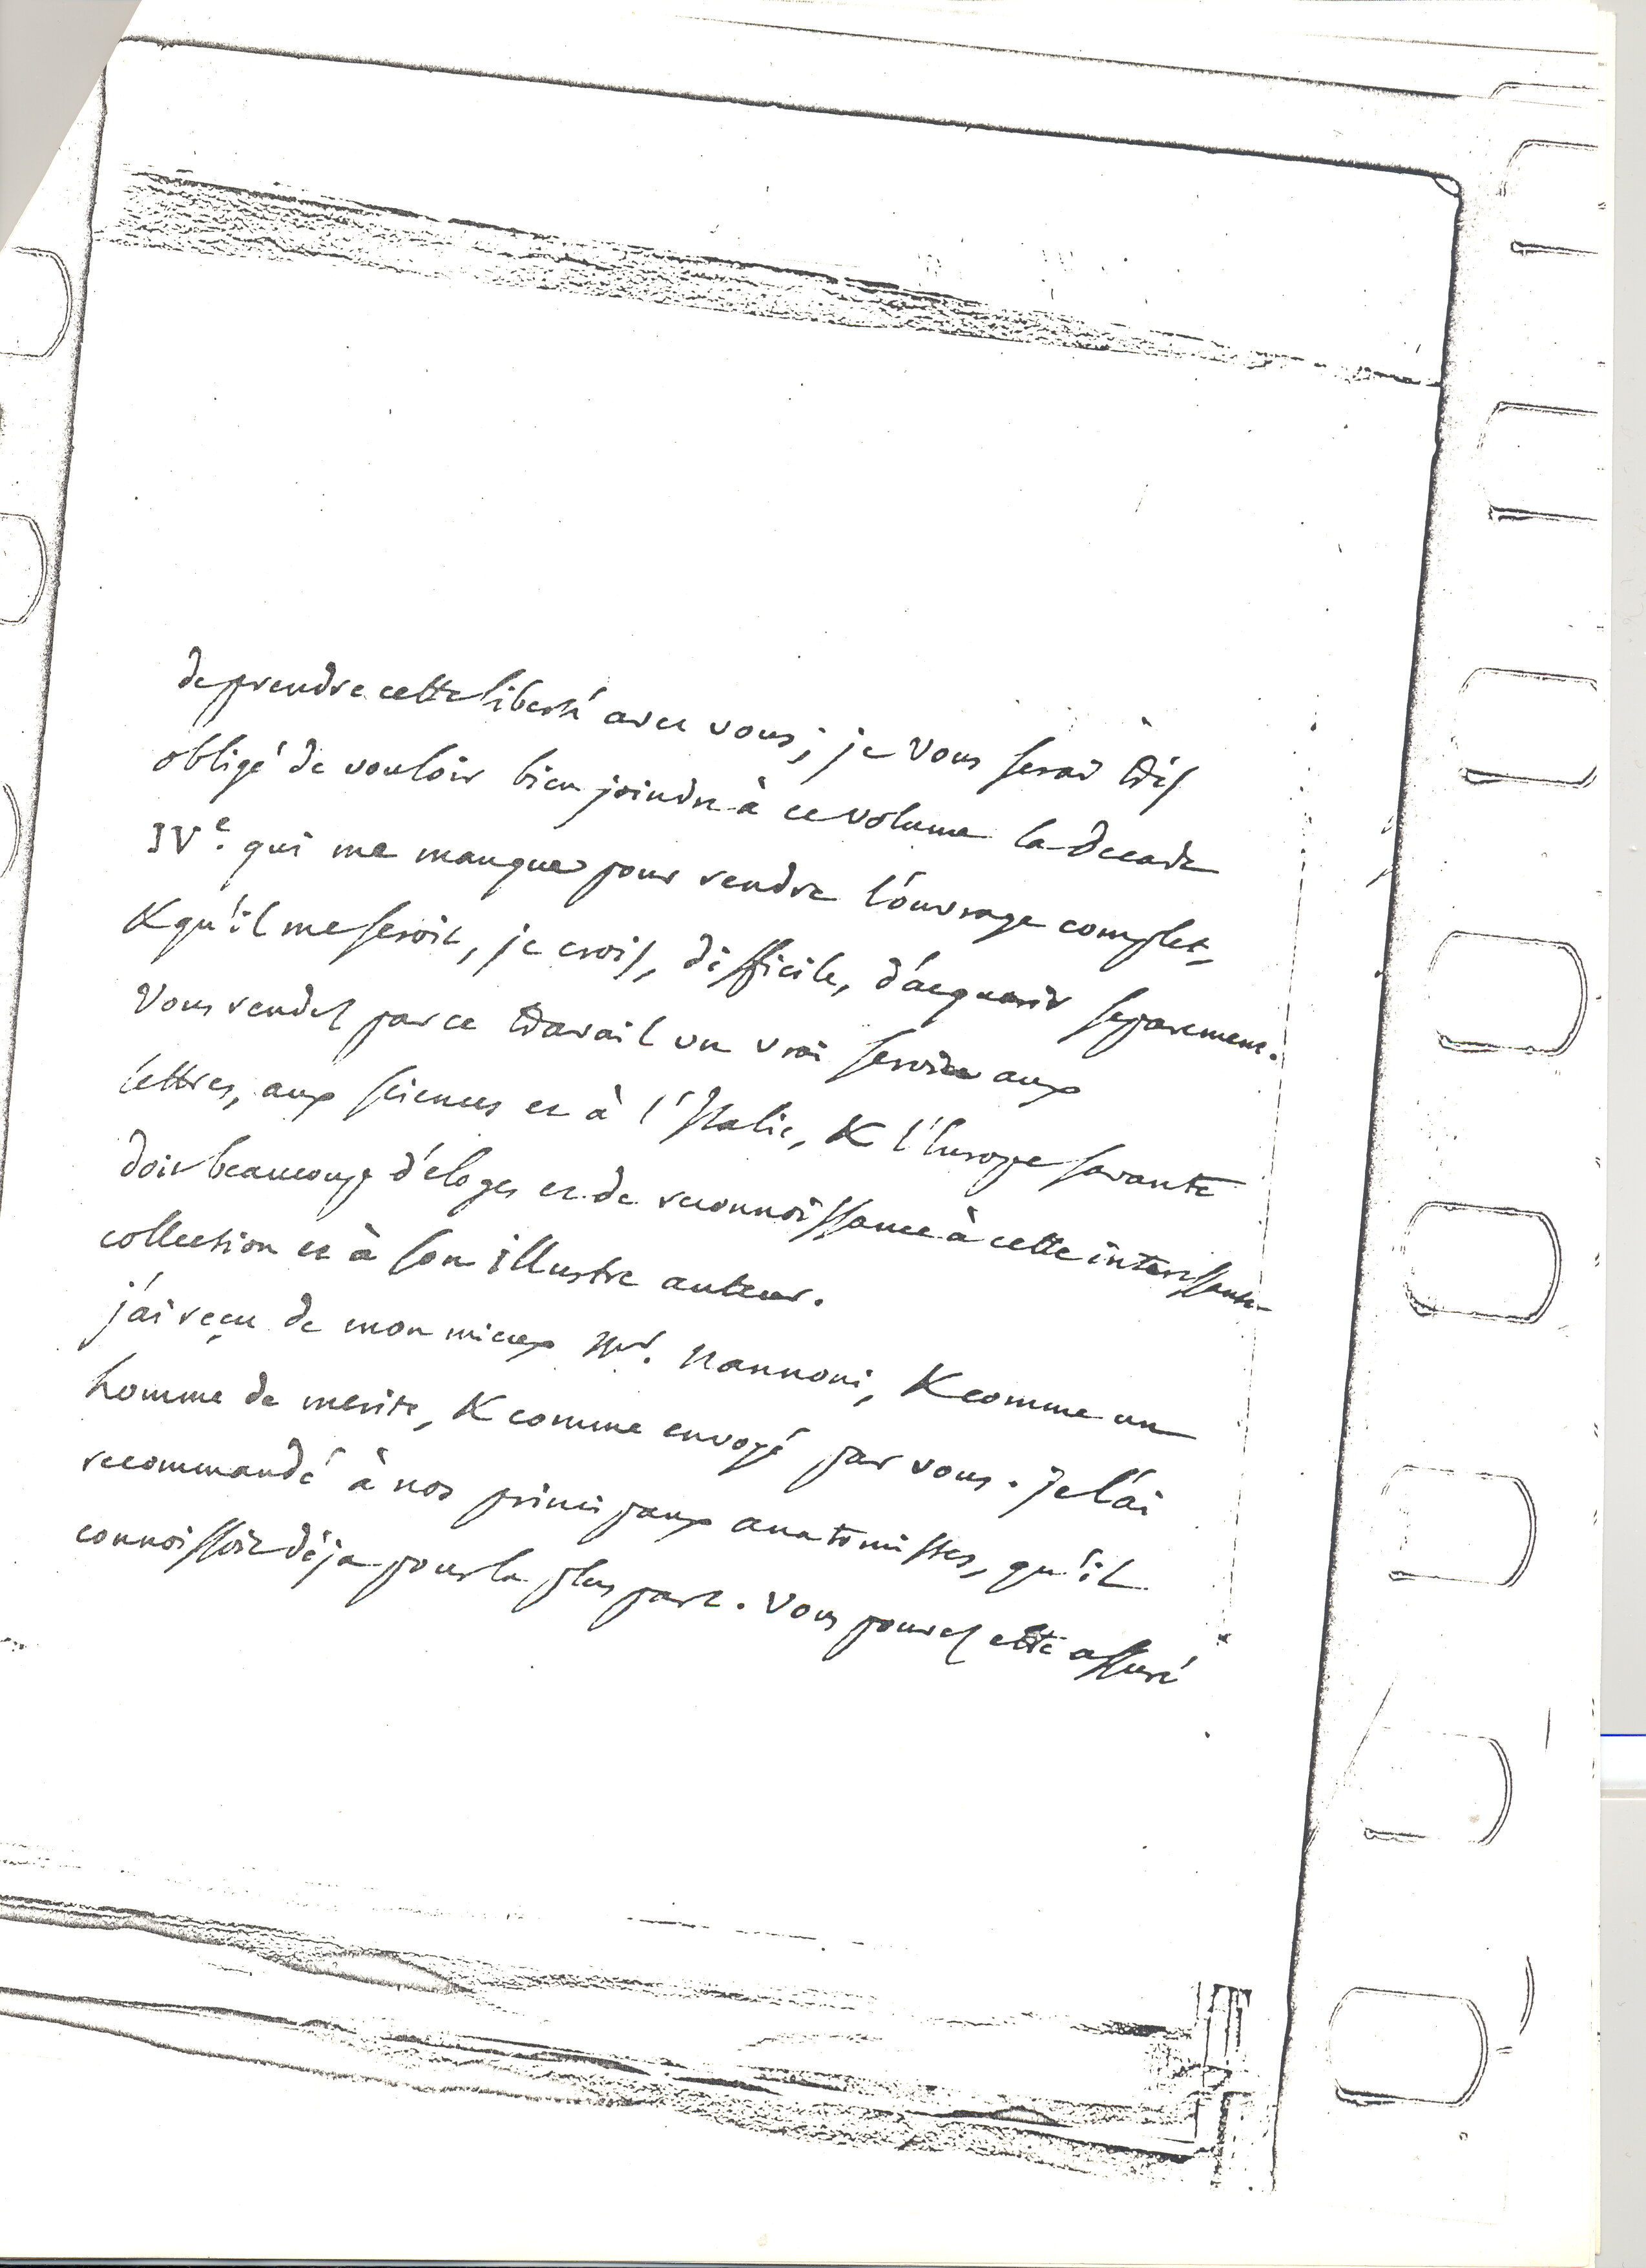 de prendre cette liberté avec vous; je vous serai très
obligé de vouloir bien joindre à ce volume la Decade
IVe. qui me manque pour rendre l'ouvrage complet,
& qu'il me seroit, je crois, difficile, d'acquerir separement.
Vous rendez par ce travail un vrai service aux
lettres, aux sciences et à l'Italie, & l'Europe savante
doit beaucoup d'éloges et de reconnoissance à cette interessante
collection et à son illustre auteur.
j'ai reçu de mon mieux Mr. Nannoni, & comme un
homme de merite, & comme envoyé par vous. Je l'ai
recommandé à nos principaux anatomistes, qu'il
connoissoit déja pour la plus part. Vous pouvez etre assuré